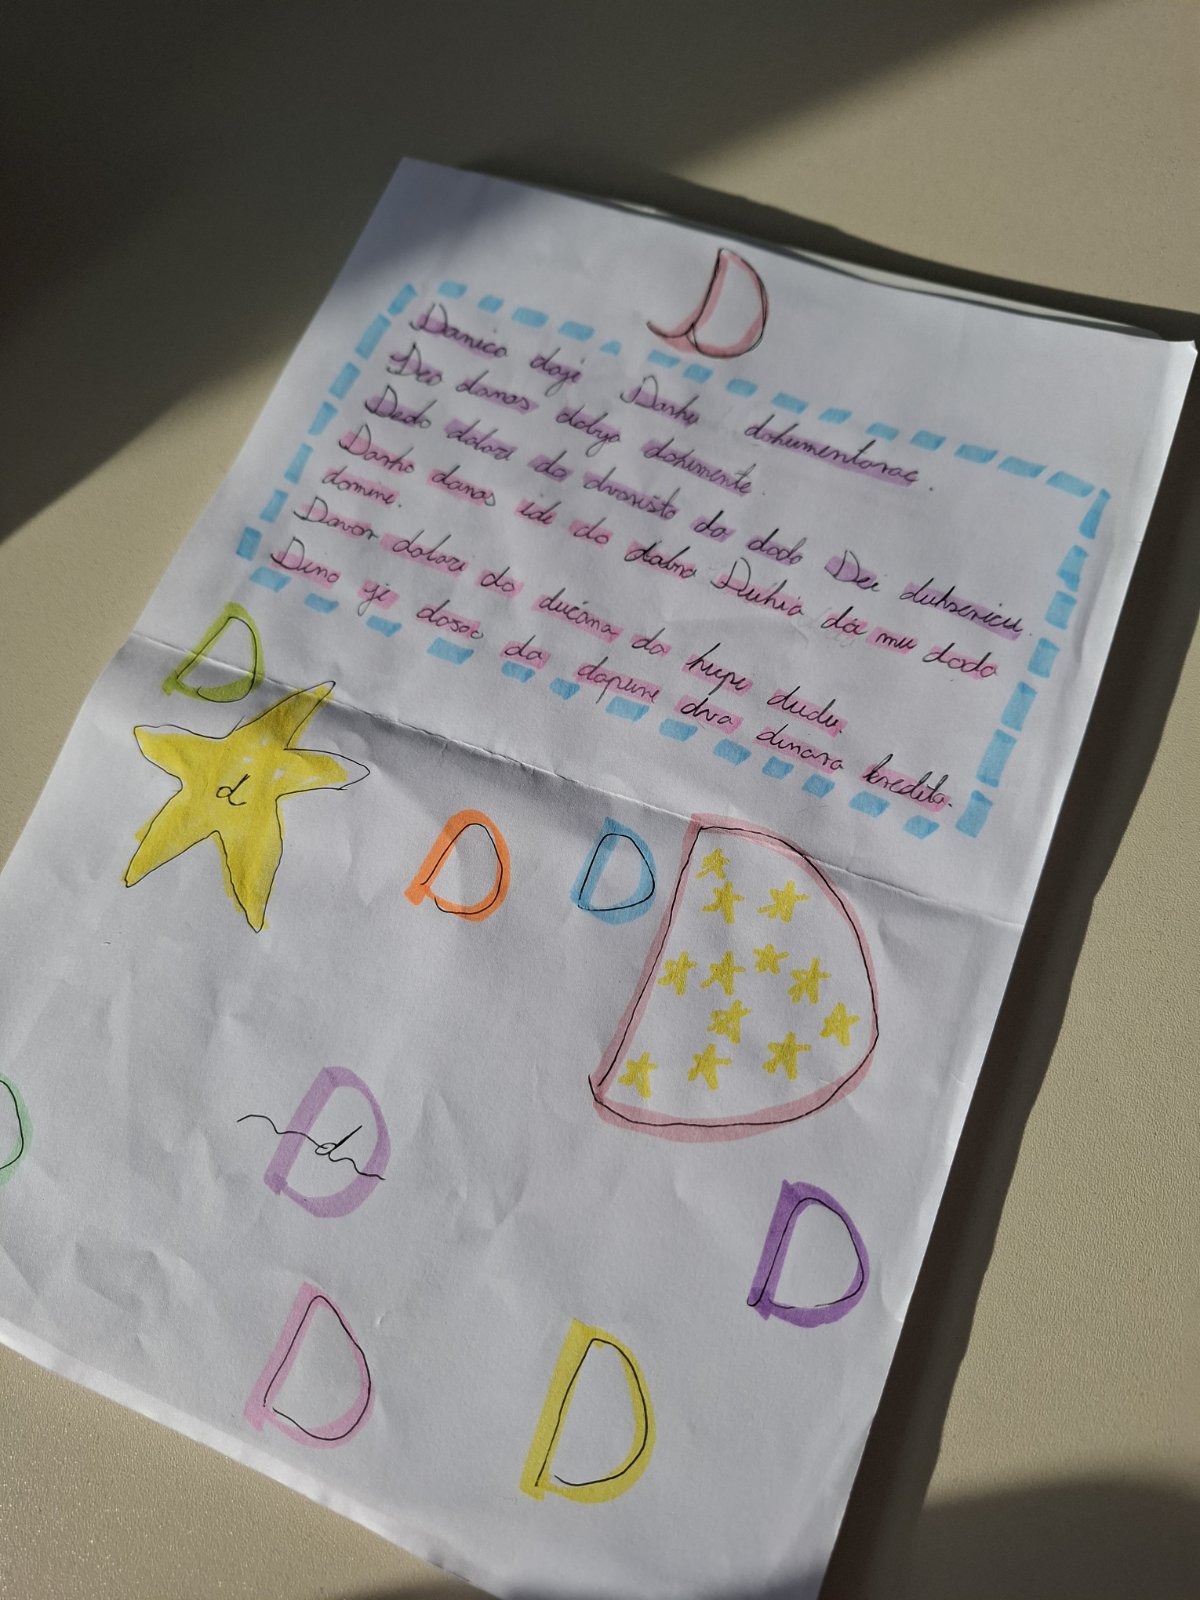 D
Danica daje Darku dokumentarac.
Deo danas dobija dokumente.
Dedo dolazi do dvorišta da doda Dei duksericu.
Darko danas ide do doktora Duhia da mu doda
domine.
Davor dolazi do dućana da kupi dudu.
Dino je došao da dopune dva dinara kredita.
D
d
D
D
D
D
d
D
D
D